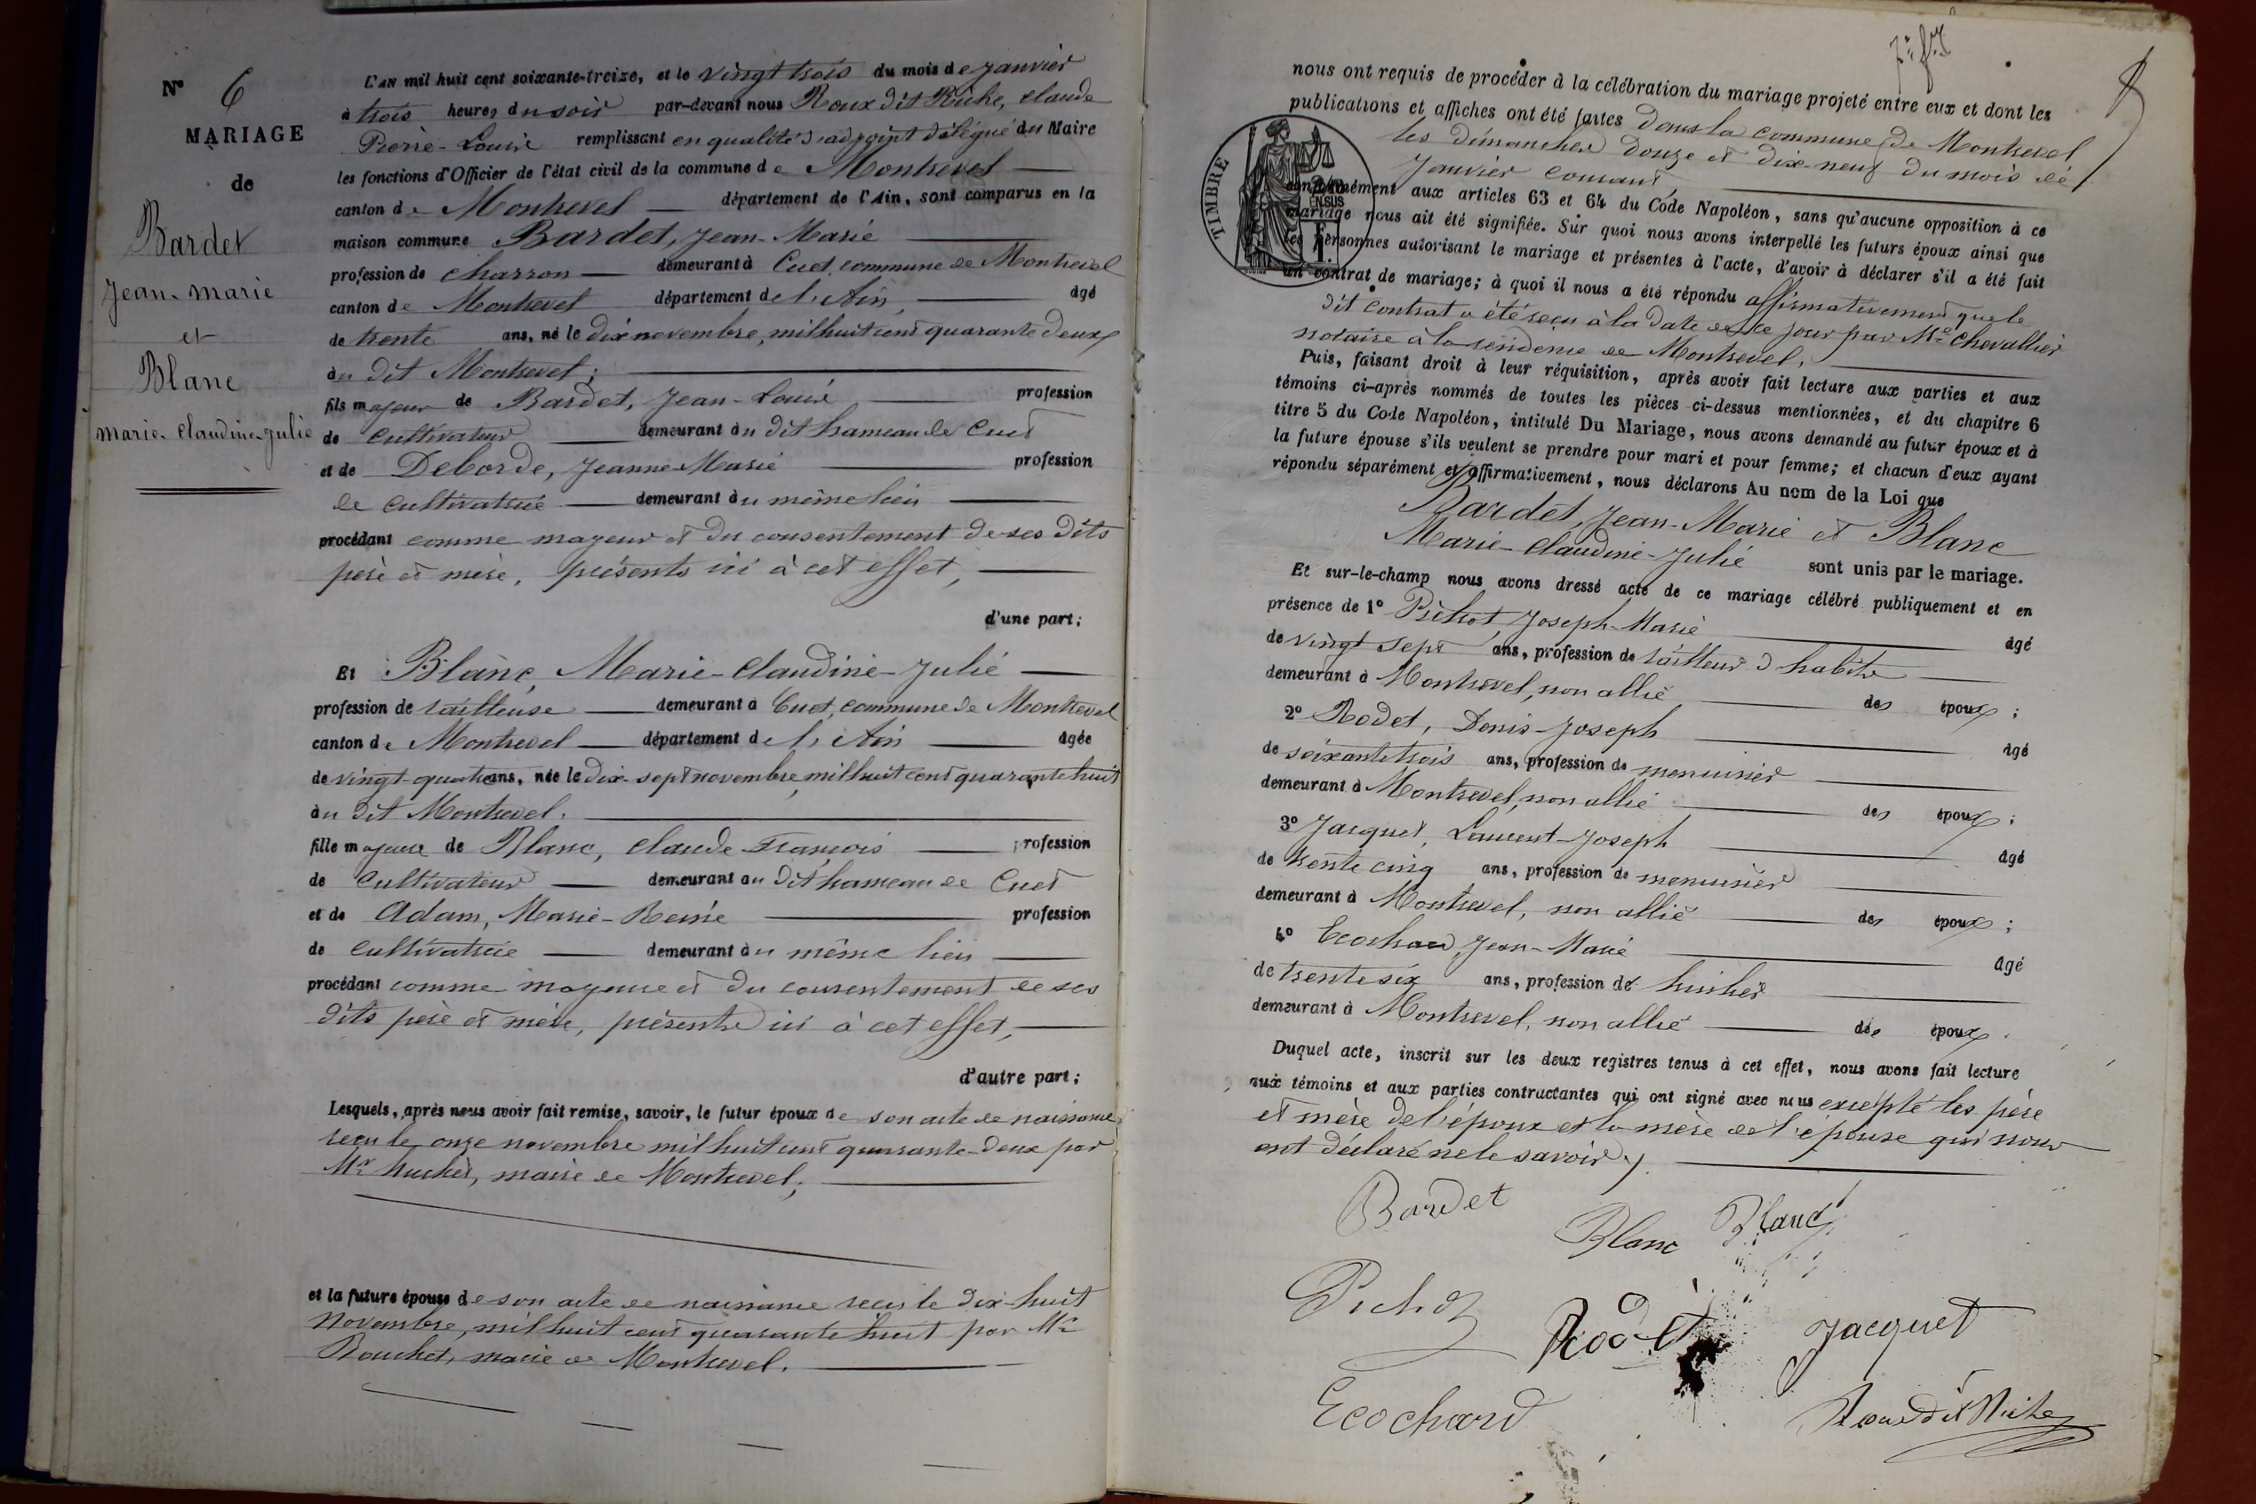 N° 6
MARIAGE
de
Bardet
Jean-marie
et
Blanc
marie-Claudine-Julie
L'AN mil huit cent soixante-treize, et le vingt trois du mois de Janvier
à trois heures du soir par-devant nous Roux dit Riche, Claude
Pierre-Louis remplissant en qualité d'adjoint délégué du Maire
les fonctions d'Officier de l'état civil de la commune de Montrevel
canton de Montrevel département de l'Ain, sont comparus en la
maison commune Bardet, Jean-Marie
profession de charron demeurant à Cuet, commune de Montrevel
canton de Montrevel département de l'Ain, âgé
de trente ans, né le dix novembre, mil huit cent quarante deux
au dit Montrevel;
fils majeur de Bardet, Jean-Louis profession
de cultivateur demeurant au dit hameau de Cuet
et de Deborde, Jeanne-Marie profession
de cultivatrice demeurant au même lieu
procédant comme majeur et du consentement de ses dits
père et mère, présents ici à cet effet,
d'une part;
Et Blanc, Marie-Claudine-Julie
profession de tailleuse demeurant à Cuet, commune de Montrevel
canton de Montrevel département de l'Ain âgée
de vingt-quatre ans, née le dix-sept novembre, mil huit cent quarante huit
au dit Montrevel.
fille majeure de Blanc, Claude-François profession
de cultivateur demeurant au dit hameau de Cuet
et de Adam, Marie-Reine profession
de cultivatrice demeurant au même lieu
procédant comme majeure et du consentement de ses
dits père et mère, présents ici à cet effet,
d'autre part;
Lesquels, après nous avoir fait remise, savoir, le futur époux de son acte de naissance
reçu le onze novembre mil huit cent quarante-deux par
Mr maire de Montrevel;
et la future épouse de son acte de naissance reçu le dix-huit
novembre, mil huit cent quarante huit par Mr
Bouchet, maire de Montrevel.
nous ont requis de procéder à la célébration du mariage projeté entre eux et dont les
publications et affiches ont été faites dans la commune de Montrevel
les dimanches douze et dix-neuf du mois de
Janvier courant
TIMBRE
conformément aux articles 63 et 64 du Code Napoléon, sans qu'aucune opposition à ce
mariage nous ait été signifiée. Sur quoi nous avons interpellé les futurs époux ainsi que
les personnes autorisant le mariage et présentes à l'acte, d'avoir à déclarer s'il a été fait
un contrat de mariage; à quoi il nous a été répondu affirmativement que le
dit contrat a été reçu à la date de ce jour par Me Chevallier
notaire à la résidence de Montrevel.
Puis, faisant droit à leur réquisition, après avoir fait lecture aux parties et aux
témoins ci-après nommés de toutes les pièces ci-dessus mentionnées, et du chapitre 6
titre 5 du Code Napoléon, intitulé Du Mariage, nous avons demandé au futur époux et à
la future épouse s'ils veulent se prendre pour mari et pour femme; et chacun d'eux ayant
répondu séparément et affirmativement, nous déclarons Au nom de la Loi que
Bardet, Jean-Marie et Blanc
Marie-Claudine-Julie sont unis par le mariage.
Et sur-le-champ nous avons dressé acte de ce mariage célébré publiquement et en
présence de 1° Pichot Joseph-Marie âgé
de vingt sept ans, profession de tailleur d'habits
demeurant à Montrevel, non allié des époux;
2° Rodet, Denis-Joseph âgé
de soixante trois ans, profession de menuisier
demeurant à Montrevel, non allié des époux;
3° Jacquet, Laurent-Joseph âgé
de trente cinq ans, profession de menuisier
demeurant à Montrevel, non allié des époux;
4° Ecochard, Jean-Marie âgé
de trente six ans, profession de
demeurant à Montrevel, non allié des époux.
Duquel acte, inscrit sur les deux registres tenus à cet effet, nous avons fait lecture
aux témoins et aux parties contractantes qui ont signé avec nous excepté les père
et mère de l'époux et la mère de l'épouse qui nous
ont déclaré ne le savoir.
Bardet
Blanc Blanc
Pichot
Rodet Jacquet
Ecochard
Roux dit Riche